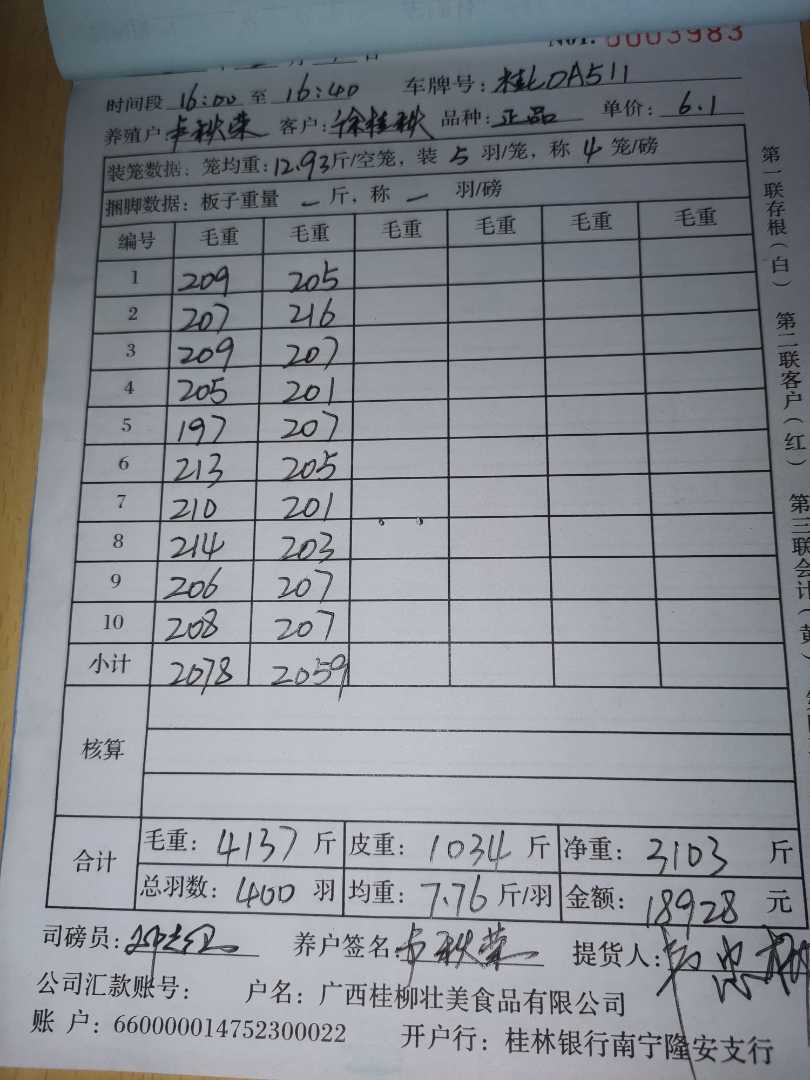 No1. 0003983
时间段 16:00 至 16:40 车牌号: 桂LDA511
养殖户: 卢秋荣 客户: 徐桂秋 品种: 正品 单价: 6.1
装笼数据: 笼均重: 12.93斤/空笼, 装 5 羽/笼, 称 4 笼/磅
捆脚数据: 板子重量 — 斤, 称 — 羽/磅
编号 毛重 毛重 毛重 毛重 毛重 毛重
1 209 205
2 207 216
3 209 207
4 205 201
5 197 207
6 213 205
7 210 201
8 214 203
9 206 207
10 208 207
小计 2078 2059
核算
合计 毛重: 4137 斤 皮重: 1034 斤 净重: 3103 斤
总羽数: 400 羽 均重: 7.76 斤/羽 金额: 18928 元
司磅员: 养户签名: 卢秋荣 提货人:
公司汇款账号: 户名: 广西桂柳壮美食品有限公司
账 户: 660000014752300022 开户行: 桂林银行南宁隆安支行
第一联存根(白) 第二联客户(红) 第三联会计(黄)